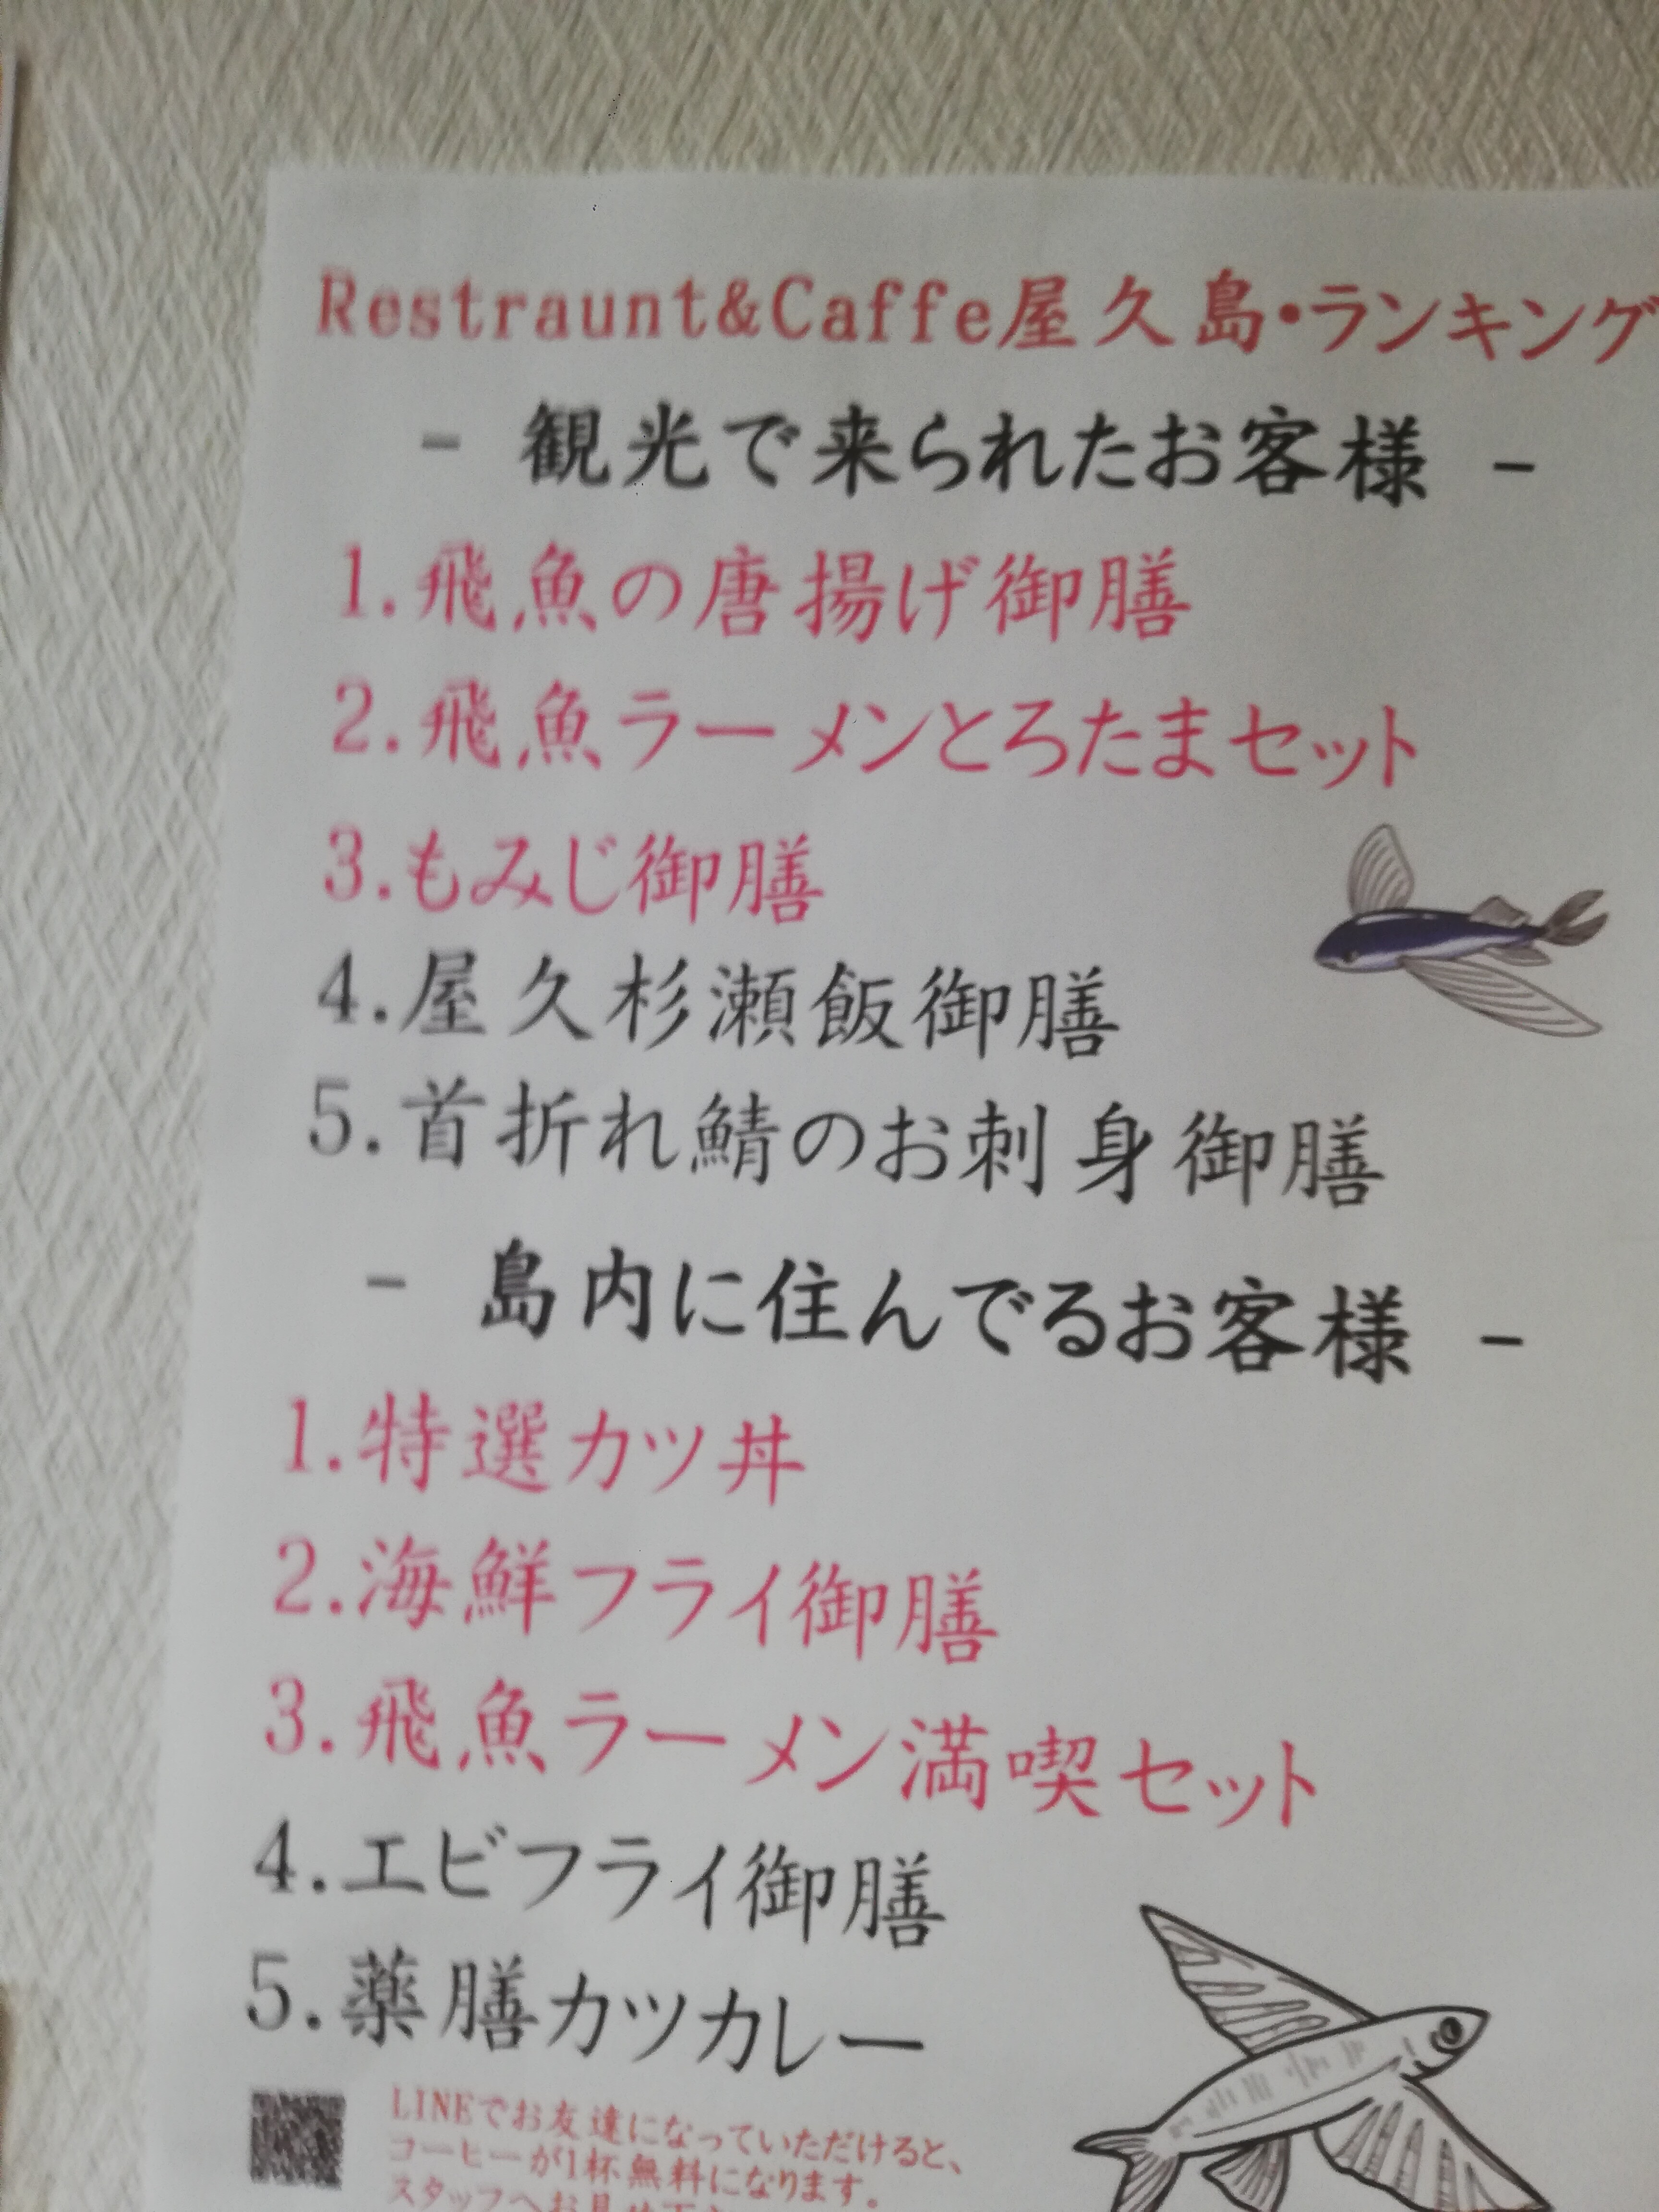 Restraunt&Caffe屋久島・ランキング
- 観光で来られたお客様 -
1.飛魚の唐揚げ御膳
2.飛魚ラーメンとろたまセット
3.もみじ御膳
4.屋久杉瀬飯御膳
5.首折れ鯖のお刺身御膳
- 島内に住んでるお客様 -
1.特選カツ丼
2.海鮮フライ御膳
3.飛魚ラーメン満喫セット
4.エビフライ御膳
5.薬膳カツカレー
LINEでお友達になっていただけると、
コーヒーが1杯無料になります。
スタッフへお見せ下さ